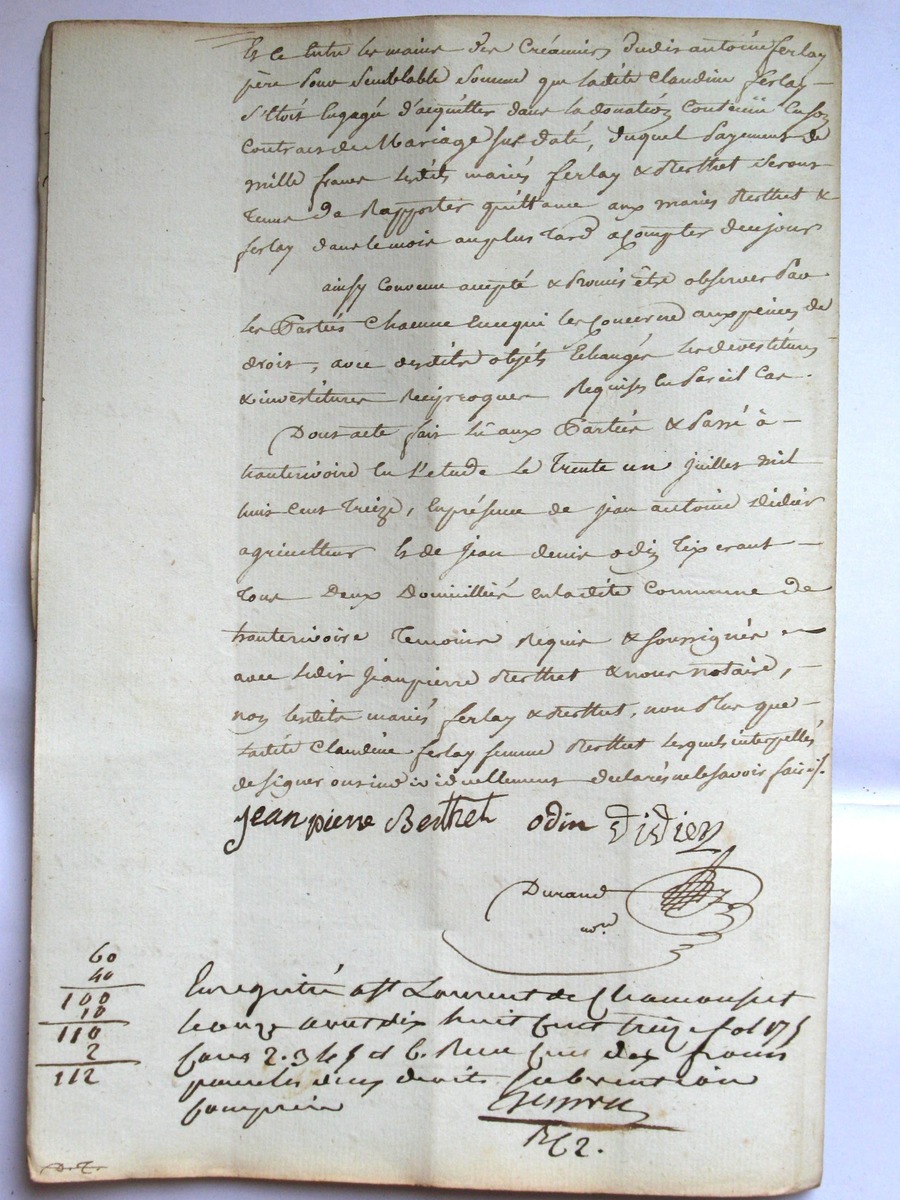 Et ce entre les mains des Créanciers dudit antoine ferlay
père pour semblable somme que ladite Claudine ferlay —
s'étoit engagé d'acquitter dans la donation contenüe en son
contrat de Mariage sus daté, duquel payement de
mille francs lesdits mariés ferlay & Berthet seront
tenus de Rapporter quittance aux mariés Berthet &
ferlay dans le mois au plus tard a compter de ce jour
ainsy convenu accepté & promis être observer par
les Parties chacune en ce qui les concerne aux peines de
droit, avec desdits objets Echangés les devestitures
& investitures Réciproques Requises en pareil cas.
Dont acte fait lû aux Parties & passé à —
hauterivoire en l'etude le trente un juillet mil
huit cent treize, en présence de jean antoine Didier
agriculteur et de jean denis odin tixerant —
tous deux domiciliés en ladite commune de
hauterivoire temoins Requis & soussignés —
avec ledit jean pierre Berthet & nous notaire, —
non lesdits mariés ferlay & Berthet, non plus que —
ladite Claudine ferlay femme Berthet lesquels interpellés
de signer ont individuellement déclarés ne le savoir faire.
jean pierre Berthet odin Didier
Durand
nre
60
40
100
10
110
2
112
Enregistré a St Laurent de Chamousset
le onze aout dix huit cent treize fol 175
cases 2. 3 4 5 et 6. Recu cent dix francs
pour les deux droits subvention
comprise
R 62.